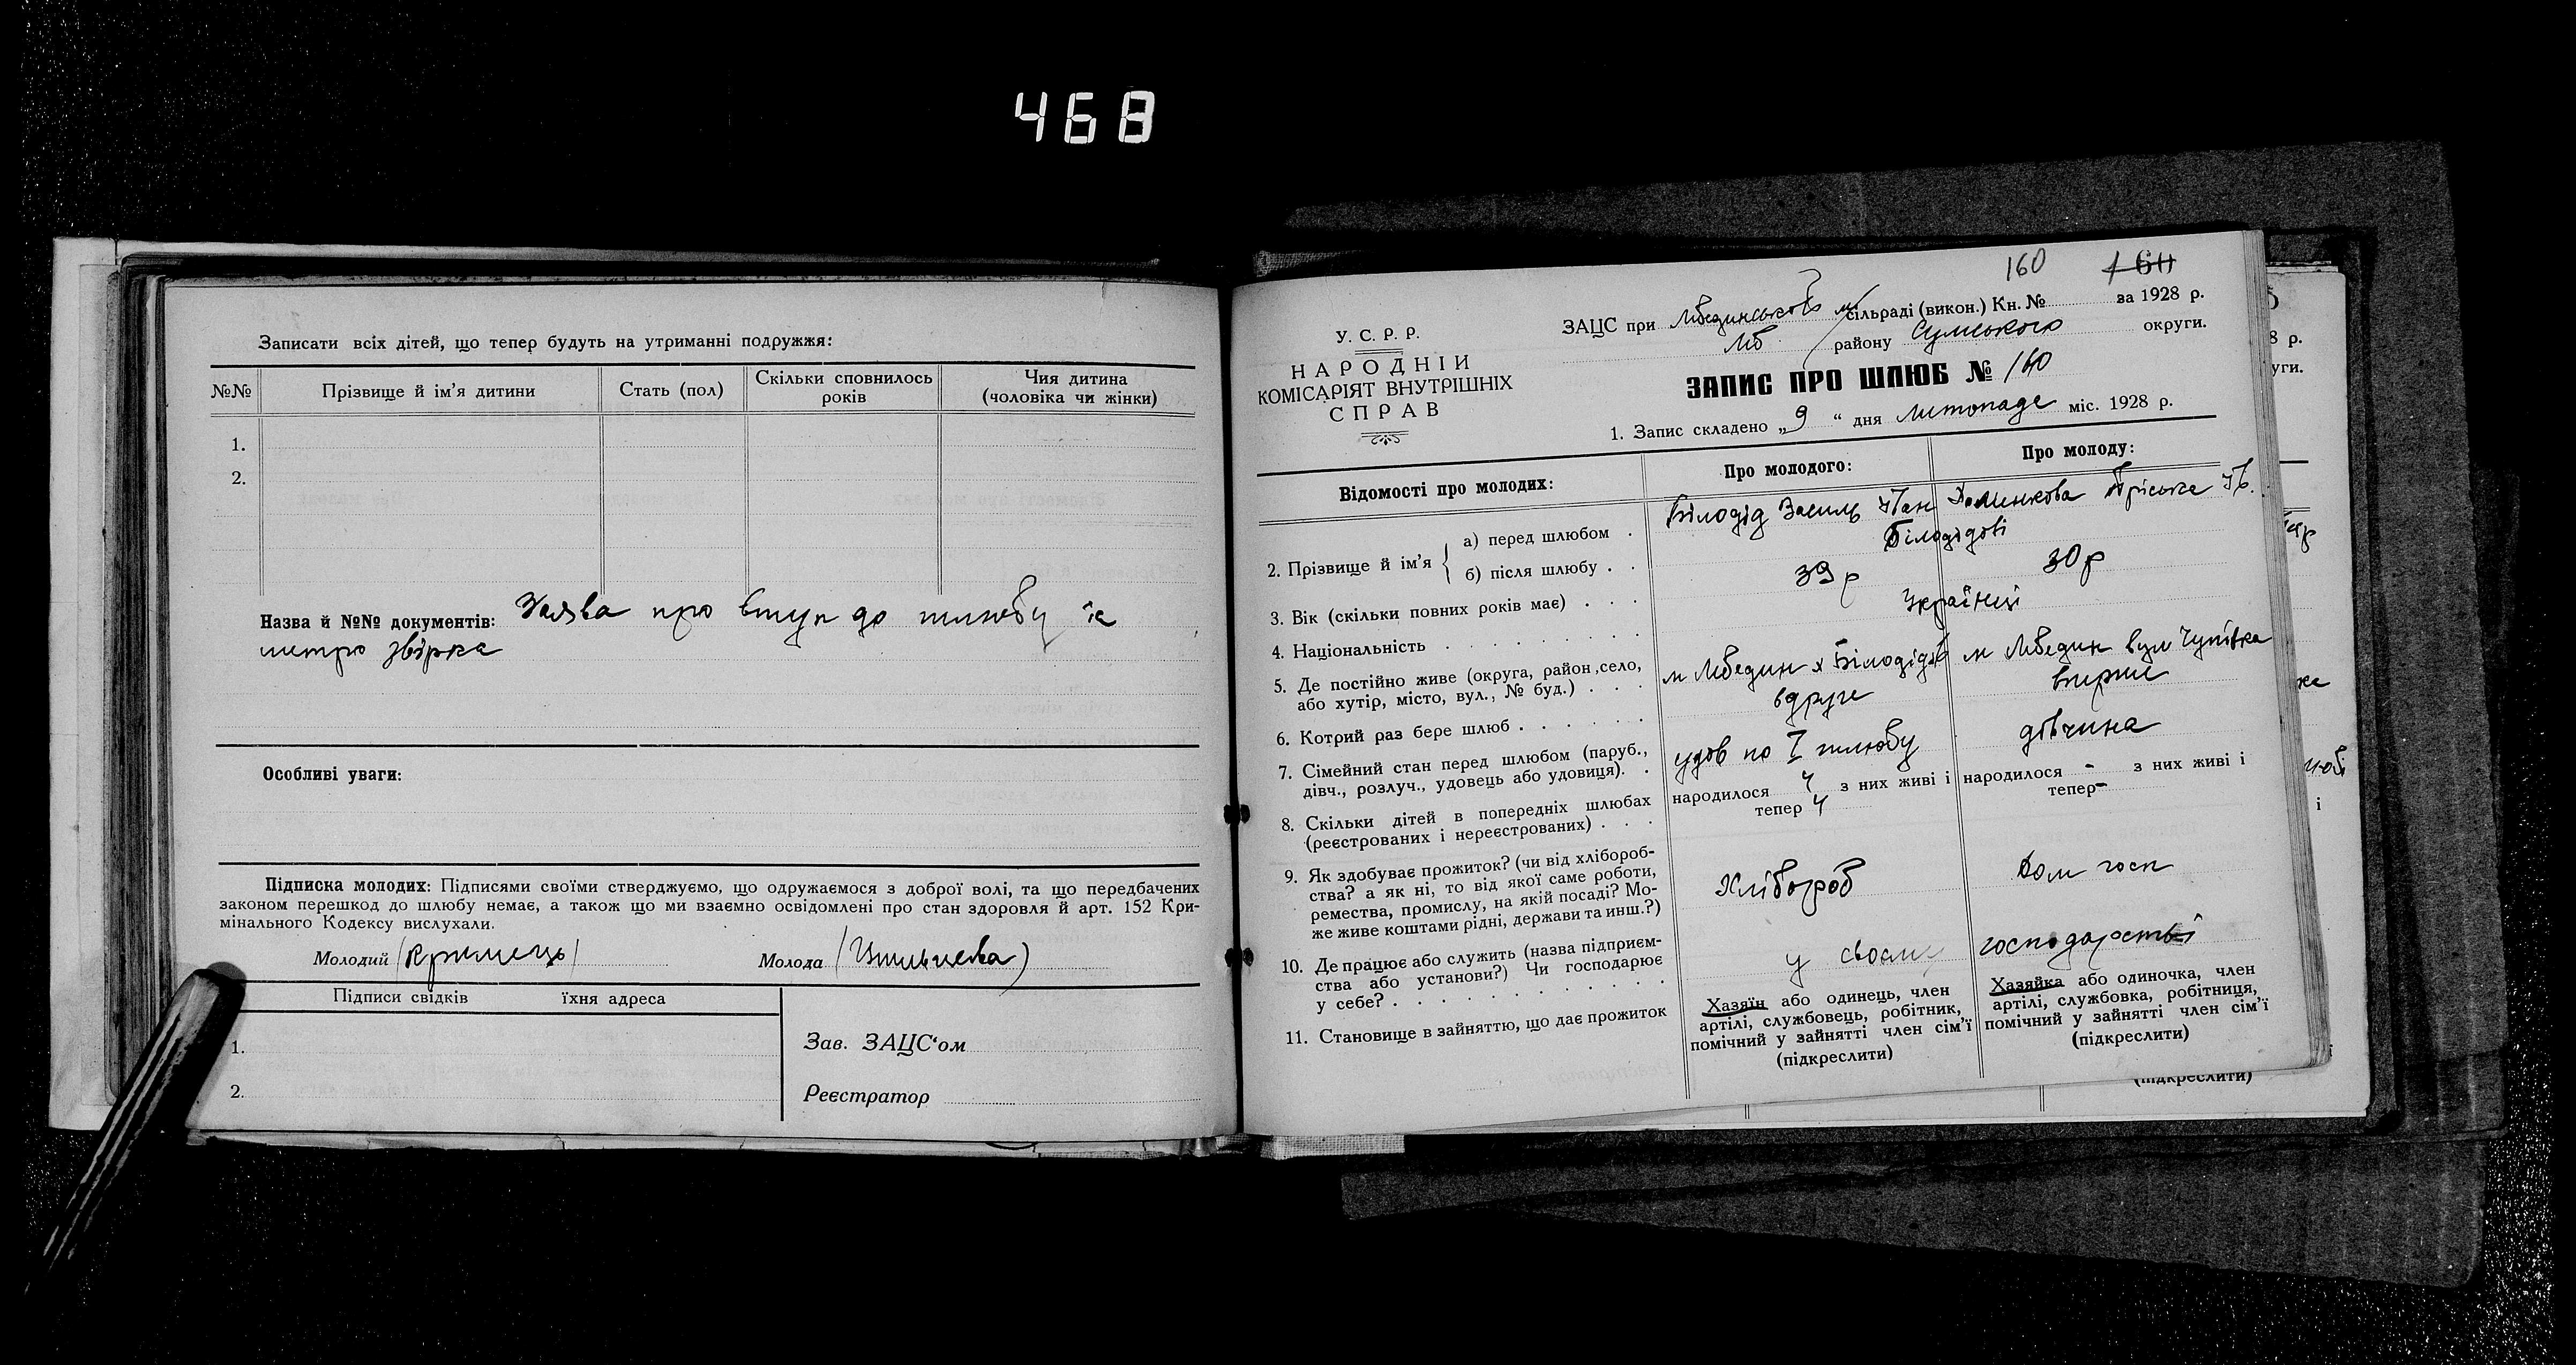 468
Записати всіх дітей, що тепер будуть на утриманні подружжя:
№№ Прізвище й ім'я дитини Стать (пол) Скільки сповнилось років Чия дитина (чоловіка чи жінки)
1.
2.
Назва й №№ документів: Заява про вступ до шлюбу їх
метро звірка
Особливі уваги:
Підписка молодих: Підписями своїми стверджуємо, що одружаємося з доброї волі, та що передбачених
законом перешкод до шлюбу немає, а також що ми взаємно освідомлені про стан здоровля й арт. 152 Кри-
мінального Кодексу вислухали.
Молодий (Кримець) Молода
Підписи свідків їхня адреса
1.
2.
Зав. ЗАЦС'ом
Реєстратор
160 160
У. С. Р. Р.
НАРОДНІЙ
КОМІСАРІЯТ ВНУТРІШНІХ
СПРАВ
ЗАЦС при Лебединській м сільраді (викон.) Кн. № за 1928 р.
Леб району Сумського округи.
ЗАПИС ПРО ШЛЮБ № 160
1. Запис складено „9“ дня листопаде міс. 1928 р.
Відомості про молодих: Про молодого: Про молоду:
2. Прізвище й ім'я
а) перед шлюбом . Білодід Василь Іван Пріська Ів.
б) після шлюбу . . Білодідові
3. Вік (скільки повних років має) . . . 39 р 30 р
4. Національність . . . . . . . Українці
5. Де постійно живе (округа, район, село,
або хутір, місто, вул., № буд.) . . . м Лебедин х Білодідів м Лебедин вул Чупівка
6. Котрий раз бере шлюб . . . . . . вдруге вперше
7. Сімейний стан перед шлюбом (паруб.,
дівч., розлуч., удовець або удовиця). . удов по I шлюбу дівчина
8. Скільки дітей в попередніх шлюбах
(реєстрованих і нереєстрованих) . . . народилося 4 з них живі і тепер 4 народилося - з них живі і тепер -
9. Як здобуває прожиток? (чи від хлібороб-
ства? а як ні, то від якої саме роботи,
ремества, промислу, на якій посаді? Мо-
же живе коштами рідні, держави та инш.?) Хлібороб Дом госп
10. Де працює або служить (назва підприєм-
ства або установи?) Чи господарює
у себе? . . . . . . . . . . . у своєму господарстві
11. Становище в зайняттю, що дає прожиток
Хазяїн або одинець, член
артілі, службовець, робітник,
помічний у зайнятті член сім'ї
(підкреслити)
Хазяйка або одиночка, член
артілі, службовка, робітниця,
помічний у зайнятті член сім'ї
(підкреслити)
(підкреслити)